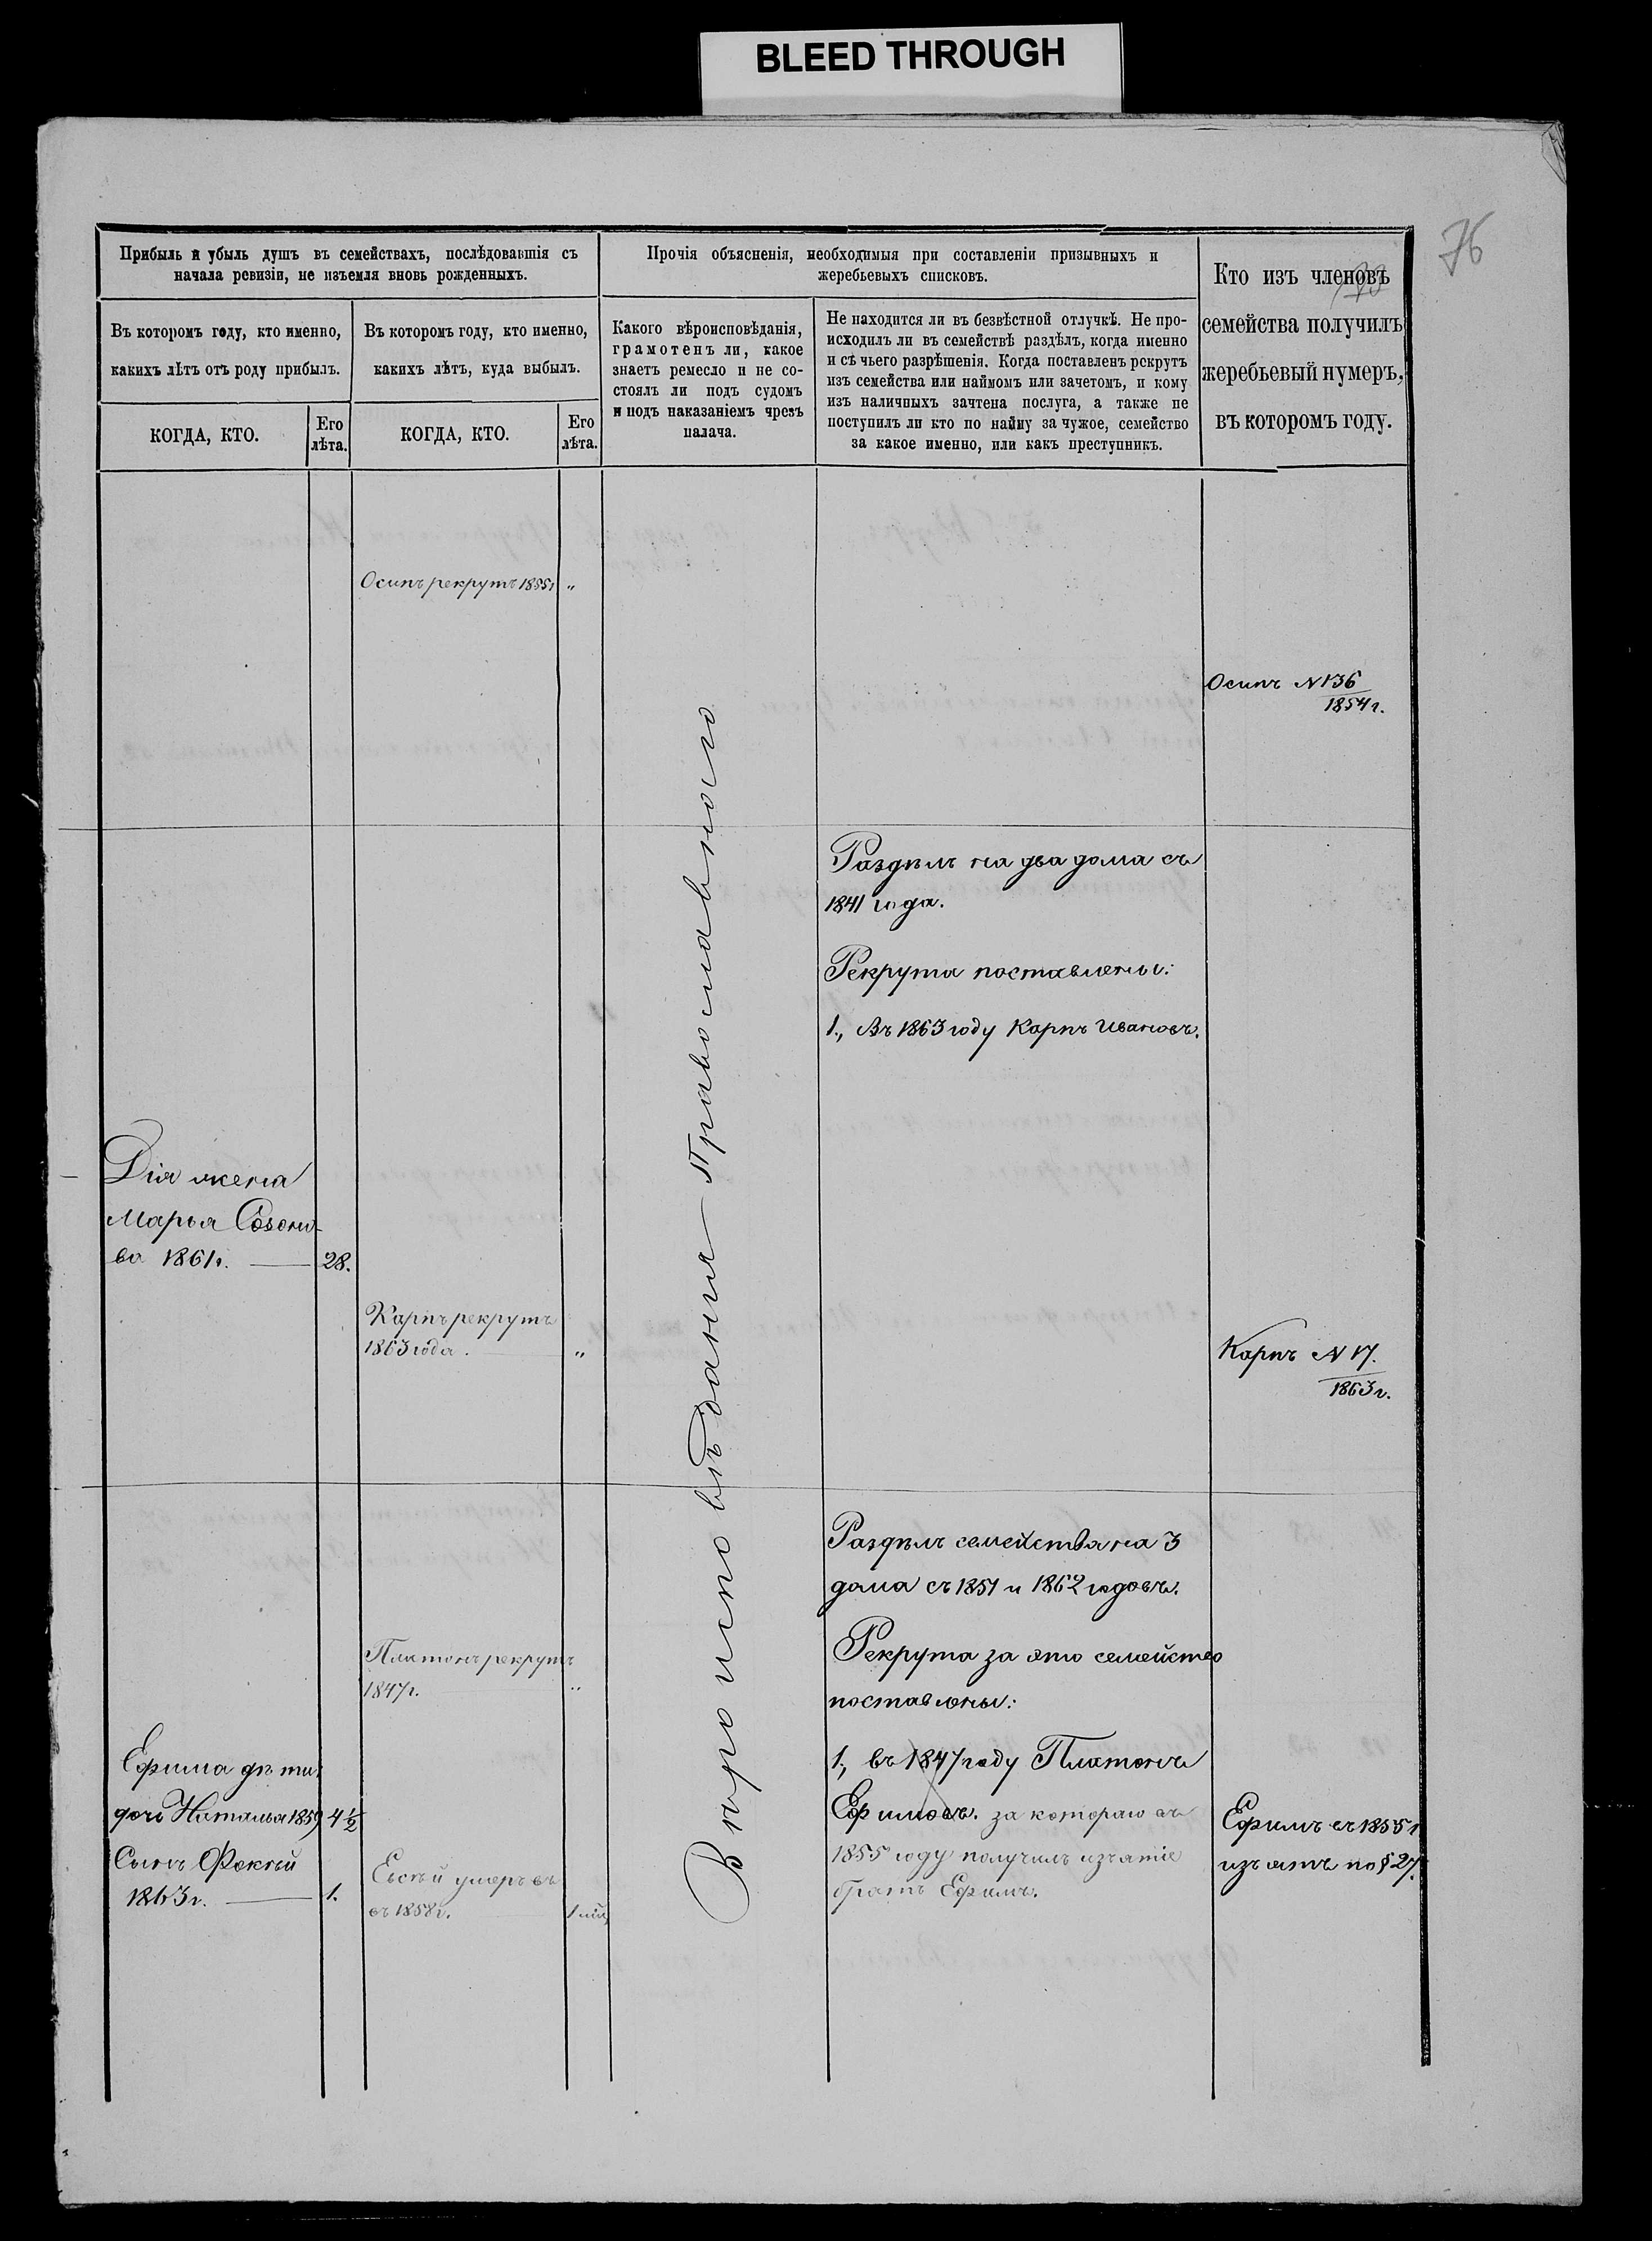 BLEED THROUGH
76
Прибыль и убыль душъ въ семействахъ, послѣдовавшія съ
начала ревизіи, не изъемля вновь рожденныхъ.
Въ которомъ году, кто именно,
какихъ лѣтъ отъ роду прибылъ.
КОГДА, КТО.
Его
лѣта.
Въ которомъ году, кто именно,
какихъ лѣтъ, куда выбылъ.
КОГДА, КТО.
Его
лѣта.
Прочія объясненія, необходимыя при составленіи призывныхъ и
жеребьевыхъ списковъ.
Какого вѣроисповѣданія,
грамотенъ ли, какое
знаетъ ремесло и не со-
стоялъ ли подъ судомъ
и подъ наказаніемъ чрезъ
палача.
Не находится ли въ безвѣстной отлучкѣ. Не про-
исходилъ ли въ семействѣ раздѣлъ, когда именно
и съ чьего разрѣшенія. Когда поставленъ рекрутъ
изъ семейства или наймомъ или зачетомъ, и кому
изъ наличныхъ зачтена послуга, а также не
поступилъ ли кто по найму за чужое, семейство
за какое именно, или какъ преступникъ.
Кто изъ членовъ
семейства получилъ
жеребьевый нумеръ,
въ которомъ году.
Осипъ рекрутъ 1855г "
Осипъ N 136
1854 г.
Вѣроисповѣданія Православнаго
Раздѣлъ на два дома съ
1841 года.
Рекрута поставлены:
1., Въ 1863 году Карпъ Ивановъ.
жена
Марья Созоно-
ва 1861г. 28.
Карпъ рекрутъ
1863 года. "
Карпъ N 17.
1863 г.
Раздѣлъ семейства на 3
дома съ 1851 и 1862 годовъ.
Рекрута за это семейство
поставлены:
Платонъ рекрутъ
1847г. "
1., въ 1847 году Платонъ
Ефимовъ. за котораго въ
1855 году получилъ изъятіе
братъ Ефимъ.
Ефима дѣти:
дочь Наталья 1859 4 1/2
Сынъ Фокѣй
1863г. 1.
Евсѣй умеръ въ
въ 1858г.
Ефимъ въ 1855 г
изъятъ по § 27.